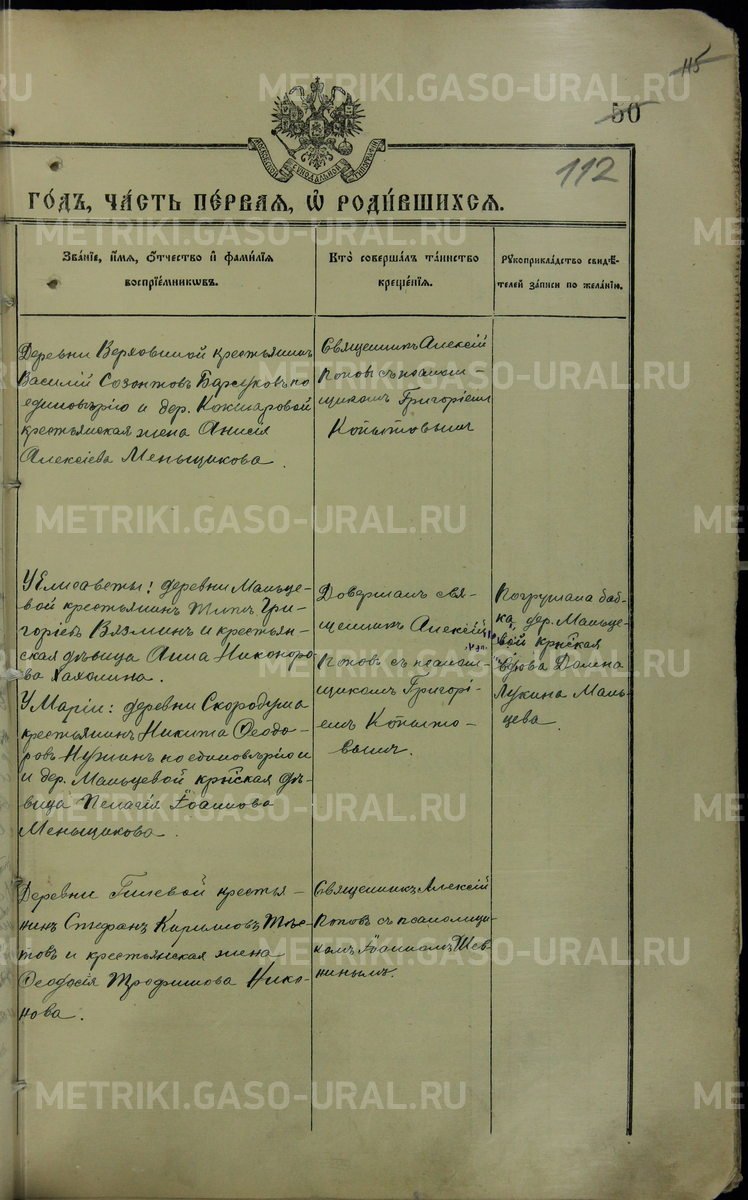 115
50
112
МОСКОВСКОЙ СѴНОДАЛЬНОЙ ТИПОГРАФІИ
ГО́ДЪ, ЧА́СТЬ ПЕ́РВАЯ, Ѡ҆ РОДИ́ВШИХСЯ.
Зва́нїе, и҆́мѧ, ѻ҆́тчество и҆ фами́лїѧ
воспрїе́мникѡвъ.
Кто̀ соверша́лъ та́инство
креще́нїѧ.
Рꙋкоприкла́дство свидѣ́-
телей за́писи по жела́нїю.
Деревни Верховиной крестьянинъ
Василій Созонтовъ Барсуковъ по
единовѣрію и дер. Кокшаровой
крестьянская жена Анисія
Алексіева Меньщикова.
Священникъ Алексій
Поповъ съ псаломщ-
щикомъ Григоріемъ
Копытовымъ
У Елисаветы: деревни Мальце-
вой крестьянинъ Титъ Гри-
горіевъ Вязминъ и крестьян-
ская дѣвица Анна Никоноро-
ва
У Маріи: деревни Скородума
крестьянинъ Никита Ѳеодо-
ровъ Нужинъ по единовѣрію и
и дер. Мальцевой кр҃нская дѣ-
вица Пелагія Іоаннова
Меньщикова.
Довершалъ свя-
щенникъ Алексій
Поповъ съ псалом-
щикомъ Григорі-
емъ Копыто-
вымъ.
Погружала баб-
ка, дер. Мальце-
вой кр҃нская
вдова
Лукина Маль-
цева.
Деревни Гилевой крестья-
нинъ Стефанъ Кириловъ
и крестьянская жена
Ѳеодосія Трофимова Нико-
нова.
Священникъ Алексій
Поповъ съ псаломщи-
комъ Іоанномъ Шев-
ниннымъ.
METRIKI.GASO-URAL.RU